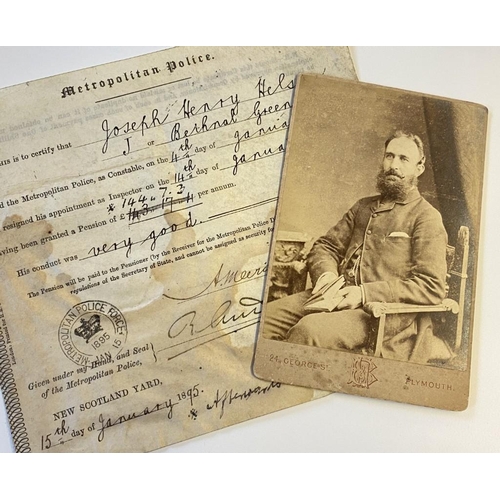 Metropolitan Police.
is to certify that Joseph Henry Hels
J or Bethnal Green
the Metropolitan Police, as Constable, on the 4th day of Janua
resigned his appointment as Inspector on the 14th day of Janua
* 144. 7. 3
ving been granted a Pension of £ per annum.
His conduct was very good.
The Pension will be paid to the Pensioner (by the Receiver for the Metropolitan Police D
regulations of the Secretary of State, and cannot be assigned as security for
METROPOLITAN POLICE FORCE
1895
JAN 15
Given under my Hand, and Seal
of the Metropolitan Police,
NEW SCOTLAND YARD,
15th day of January 1895.
* Afterwards
24, GEORGE ST
PLYMOUTH.